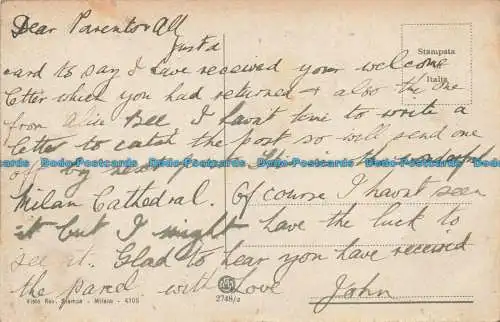 Dear Parents & All
Just a
card to say I have received your welcome
letter which you had returned & also the one
from Alice Bee I havn't time to write a
letter to catch the post so will send one
off by next This is the wonderful
Milan Cathedral. Of course I havnt seen
it but I might have the luck to
see it. Glad to hear you have received
the parcel with Love
John
Stampata
in
Italia
Visto Rev. Stampa - Milano - 4105
2748/a
Dodo-Postcards Dodo-Postcards Dodo-Postcards Dodo-Postcards Dodo-Postcards